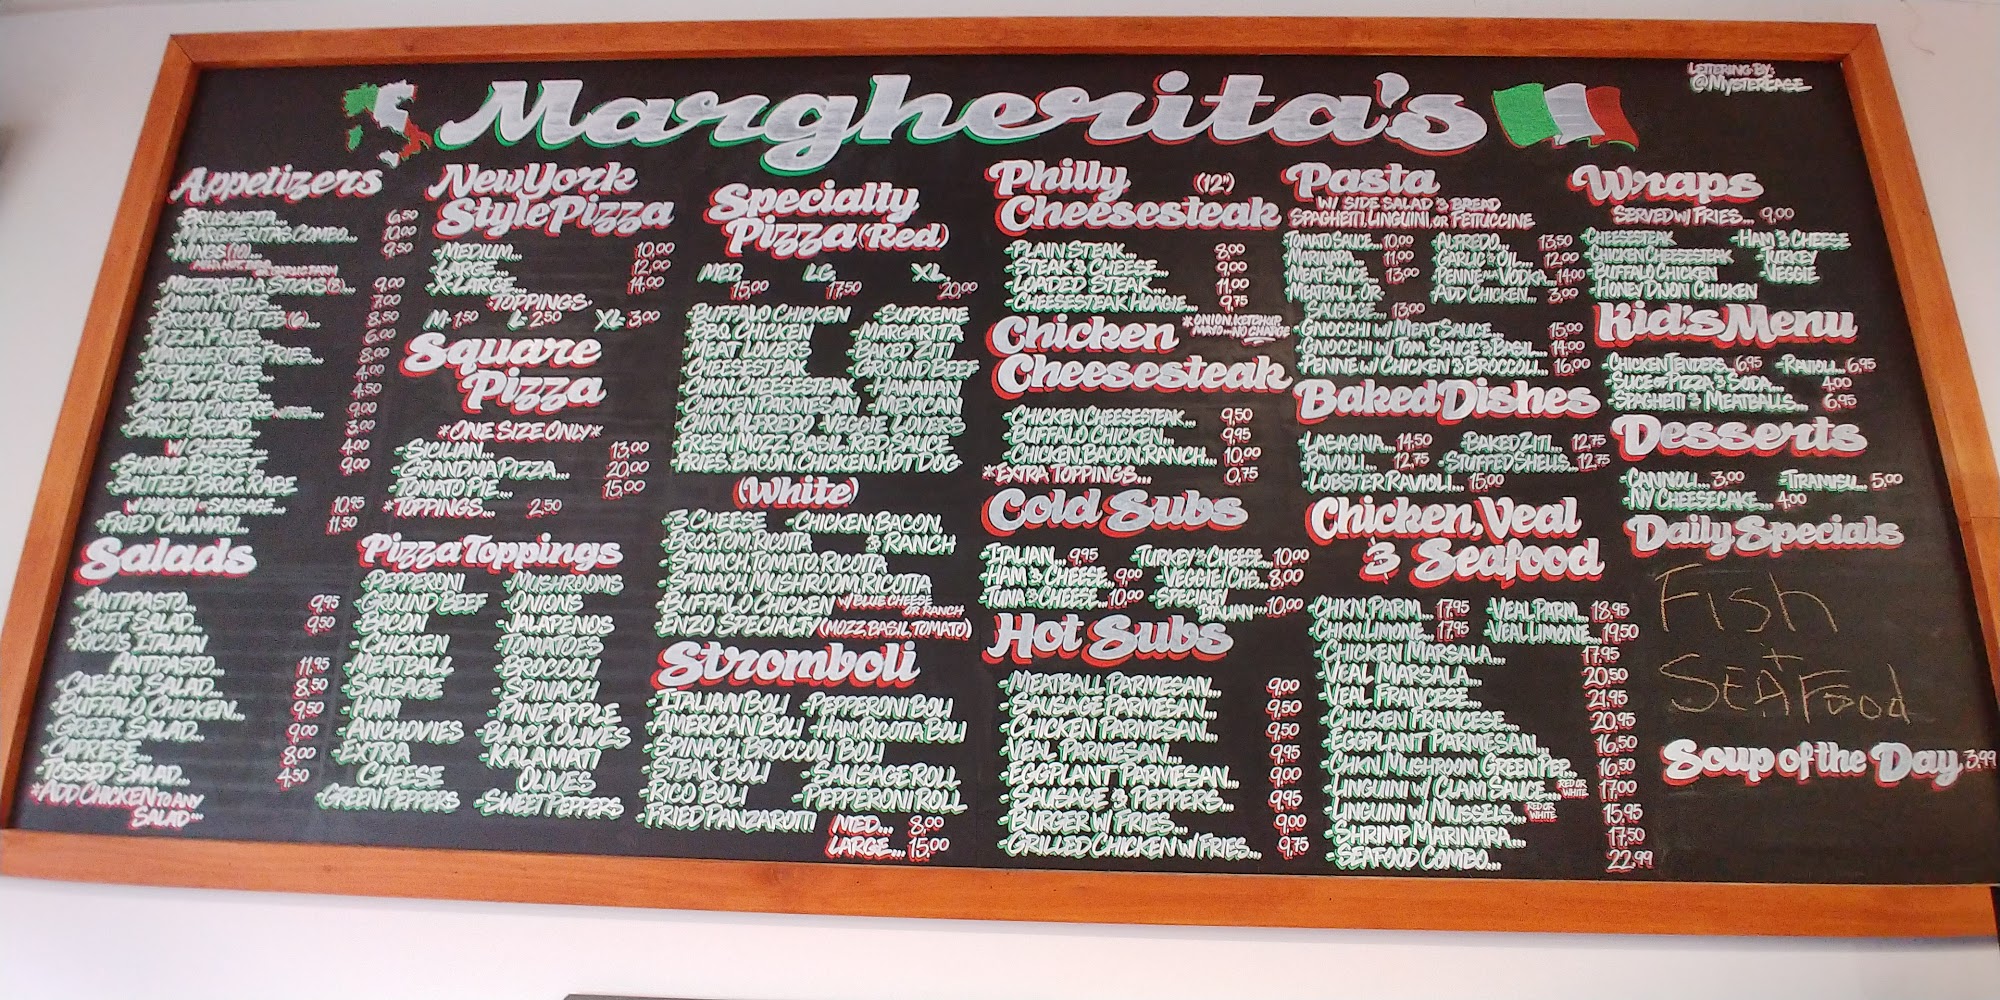 LETTERING BY:
@MYSTEREASE
Margherita's
Appetizers
BRUSCHETTA... 6.50
MARGHERITA'S COMBO... 10.00
WINGS (10)... 9.50
MOZZARELLA STICKS (8)... 9.00
ONION RINGS... 7.00
BROCCOLI BITES (6)... 8.50
PIZZA FRIES... 6.00
MARGHERITA'S FRIES... 8.00
FRENCH FRIES... 4.00
OLD BAY FRIES... 4.50
CHICKEN FINGERS W/ FRIES... 9.00
GARLIC BREAD... 3.00
W/ CHEESE... 4.00
SHRIMP BASKET 9.00
SAUTEED BROC. RABE
W/ CHICKEN OR SAUSAGE... 10.95
FRIED CALAMARI... 11.50
Salads
-ANTIPASTO... 9.95
-CHEF SALAD... 9.50
-RICO'S ITALIAN
ANTIPASTO... 11.95
-CAESAR SALAD... 8.50
-BUFFALO CHICKEN... 9.50
-GREEK SALAD... 9.00
-CAPRESE... 8.00
-TOSSED SALAD... 4.50
*ADD CHICKEN TO ANY
SALAD...
New York
Style Pizza
-MEDIUM... 10.00
-LARGE... 12.00
-X-LARGE... 14.00
TOPPINGS:
M-1.50 L-2.50 XL-3.00
Square
Pizza
*ONE SIZE ONLY*
-SICILIAN... 13.00
-GRANDMA PIZZA... 20.00
-TOMATO PIE... 15.00
*TOPPINGS... 2.50
Pizza Toppings
-PEPPERONI -MUSHROOMS
-GROUND BEEF -ONIONS
-BACON -JALAPENOS
-CHICKEN -TOMATOES
-MEATBALL -BROCCOLI
-SAUSAGE -SPINACH
-HAM -PINEAPPLE
-ANCHOVIES -BLACK OLIVES
-EXTRA -KALAMATI
CHEESE OLIVES
-GREEN PEPPERS -SWEET PEPPERS
Specialty
Pizza (Red)
MED. LG XL
15.00 17.50 20.00
-BUFFALO CHICKEN -SUPREME
-BBQ CHICKEN -MARGARITA
-MEAT LOVERS -BAKED ZITI
-CHEESESTEAK -GROUND BEEF
-CHKN. CHEESESTEAK -HAWAIIAN
-CHICKEN PARMESAN -MEXICAN
-CHKN. ALFREDO -VEGGIE LOVERS
-FRESH MOZZ, BASIL, RED SAUCE
-FRIES, BACON, CHICKEN, HOT DOG
(White)
-3 CHEESE -CHICKEN, BACON,
-BROC, TOM, RICOTTA & RANCH
-SPINACH, TOMATO, RICOTTA
-SPINACH, MUSHROOM, RICOTTA
-BUFFALO CHICKEN W/ BLUE CHEESE OR RANCH
-ENZO SPECIALTY (MOZZ, BASIL, TOMATO)
Stromboli
-ITALIAN BOLI -PEPPERONI BOLI
-AMERICAN BOLI -HAM, RICOTTA BOLI
-SPINACH, BROCCOLI BOLI
-STEAK BOLI -SAUSAGE ROLL
-RICO BOLI -PEPPERONI ROLL
-FRIED PANZAROTTI MED... 8.00
LARGE... 15.00
Philly (12")
Cheesesteak
-PLAIN STEAK... 8.00
-STEAK & CHEESE... 9.00
-LOADED STEAK... 11.00
-CHEESESTEAK HOAGIE... 9.75
*ONION, KETCHUP,
MAYO...NO CHARGE
Chicken
Cheesesteak
-CHICKEN CHEESESTEAK... 9.50
-BUFFALO CHICKEN... 9.95
-CHICKEN, BACON, RANCH... 10.00
*EXTRA TOPPINGS... 0.75
Cold Subs
-ITALIAN... 9.95 -TURKEY & CHEESE... 10.00
-HAM & CHEESE... 9.00 -VEGGIE/CHS... 8.00
-TUNA & CHEESE... 10.00 -SPECIALTY
ITALIAN... 10.00
Hot Subs
-MEATBALL PARMESAN... 9.00
-SAUSAGE PARMESAN... 9.50
-CHICKEN PARMESAN... 9.50
-VEAL PARMESAN... 9.95
-EGGPLANT PARMESAN... 9.00
-SAUSAGE & PEPPERS... 9.95
-BURGER W/ FRIES... 9.00
-GRILLED CHICKEN W/ FRIES... 9.75
Pasta
W/ SIDE SALAD & BREAD
SPAGHETTI, LINGUINI, OR FETTUCCINE
-TOMATO SAUCE... 10.00 -ALFREDO... 13.50
-MARINARA... 11.00 -GARLIC & OIL... 12.00
-MEAT SAUCE... 13.00 -PENNE ALA VODKA... 14.00
-MEATBALL OR -ADD CHICKEN... 3.00
SAUSAGE... 13.00
-GNOCCHI W/ MEAT SAUCE... 15.00
-GNOCCHI W/ TOM. SAUCE & BASIL... 14.00
-PENNE W/ CHICKEN & BROCCOLI... 16.00
Baked Dishes
-LASAGNA... 14.50 -BAKED ZITI... 12.75
-RAVIOLI... 12.75 -STUFFED SHELLS... 12.75
-LOBSTER RAVIOLI... 15.00
Chicken, Veal
& Seafood
-CHKN. PARM... 17.95 -VEAL PARM... 18.95
-CHKN. LIMONE... 17.95 -VEAL LIMONE... 19.50
-CHICKEN MARSALA... 17.95
-VEAL MARSALA... 20.50
-VEAL FRANCESE... 21.95
-CHICKEN FRANCESE... 20.95
-EGGPLANT PARMESAN... 16.50
-CHKN, MUSHROOM, GREEN PEP... 16.50
-LINGUINI W/ CLAM SAUCE... RED OR WHITE 17.00
-LINGUINI W/ MUSSELS... RED OR WHITE 15.95
-SHRIMP MARINARA... 17.50
-SEAFOOD COMBO... 22.99
Wraps
SERVED W/ FRIES... 9.00
-CHEESESTEAK -HAM & CHEESE
-CHICKEN CHEESESTEAK -TURKEY
-BUFFALO CHICKEN -VEGGIE
-HONEY DIJON CHICKEN
Kid's Menu
-CHICKEN TENDERS... 6.95 -RAVIOLI... 6.95
-SLICE OF PIZZA & SODA... 4.00
-SPAGHETTI & MEATBALLS... 6.95
Desserts
-CANNOLI... 3.00 -TIRAMISU... 5.00
-NY CHEESECAKE... 4.00
Daily Specials
Fish
+
SEAFood
Soup of the Day 3.99